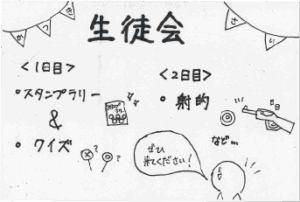 生徒会
<1日目>
・スタンプラリー
&
・クイズ
<2日目>
・射的
など…
ぜひ
来てください!